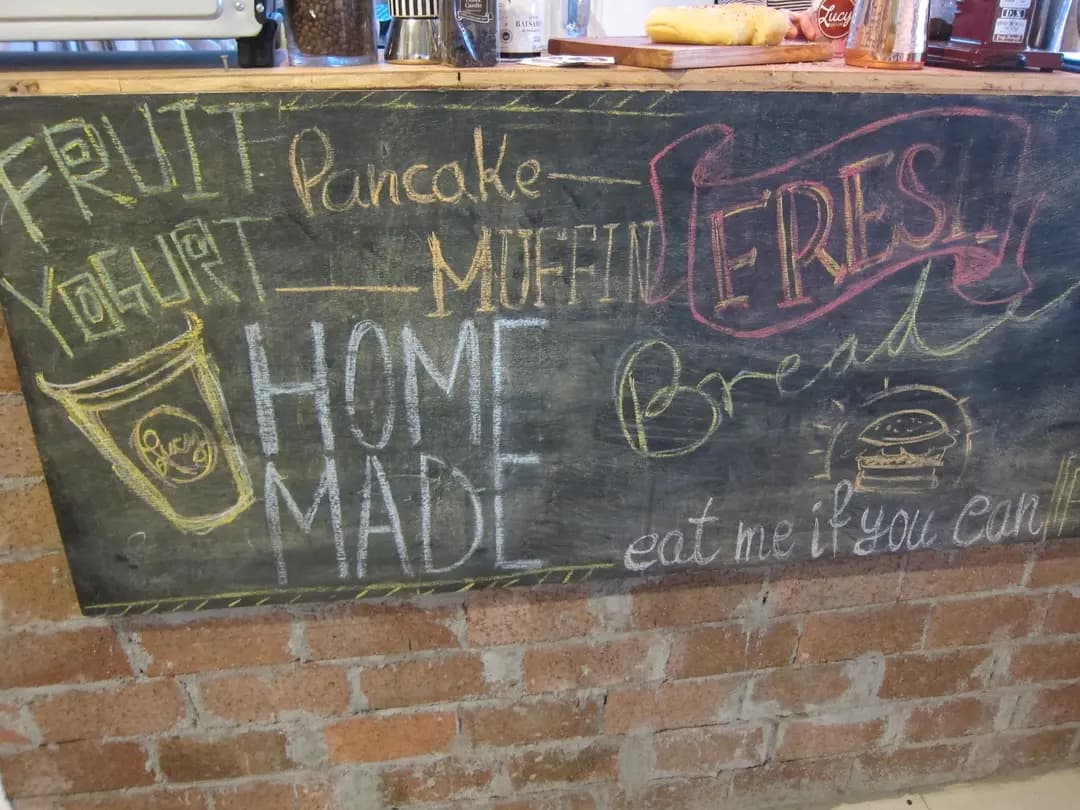 FRUIT
YOGURT
Pancake
MUFFIN
FRESH
Bread
HOME
MADE
Lucy
eat me if you can
Lucy
BALSAM